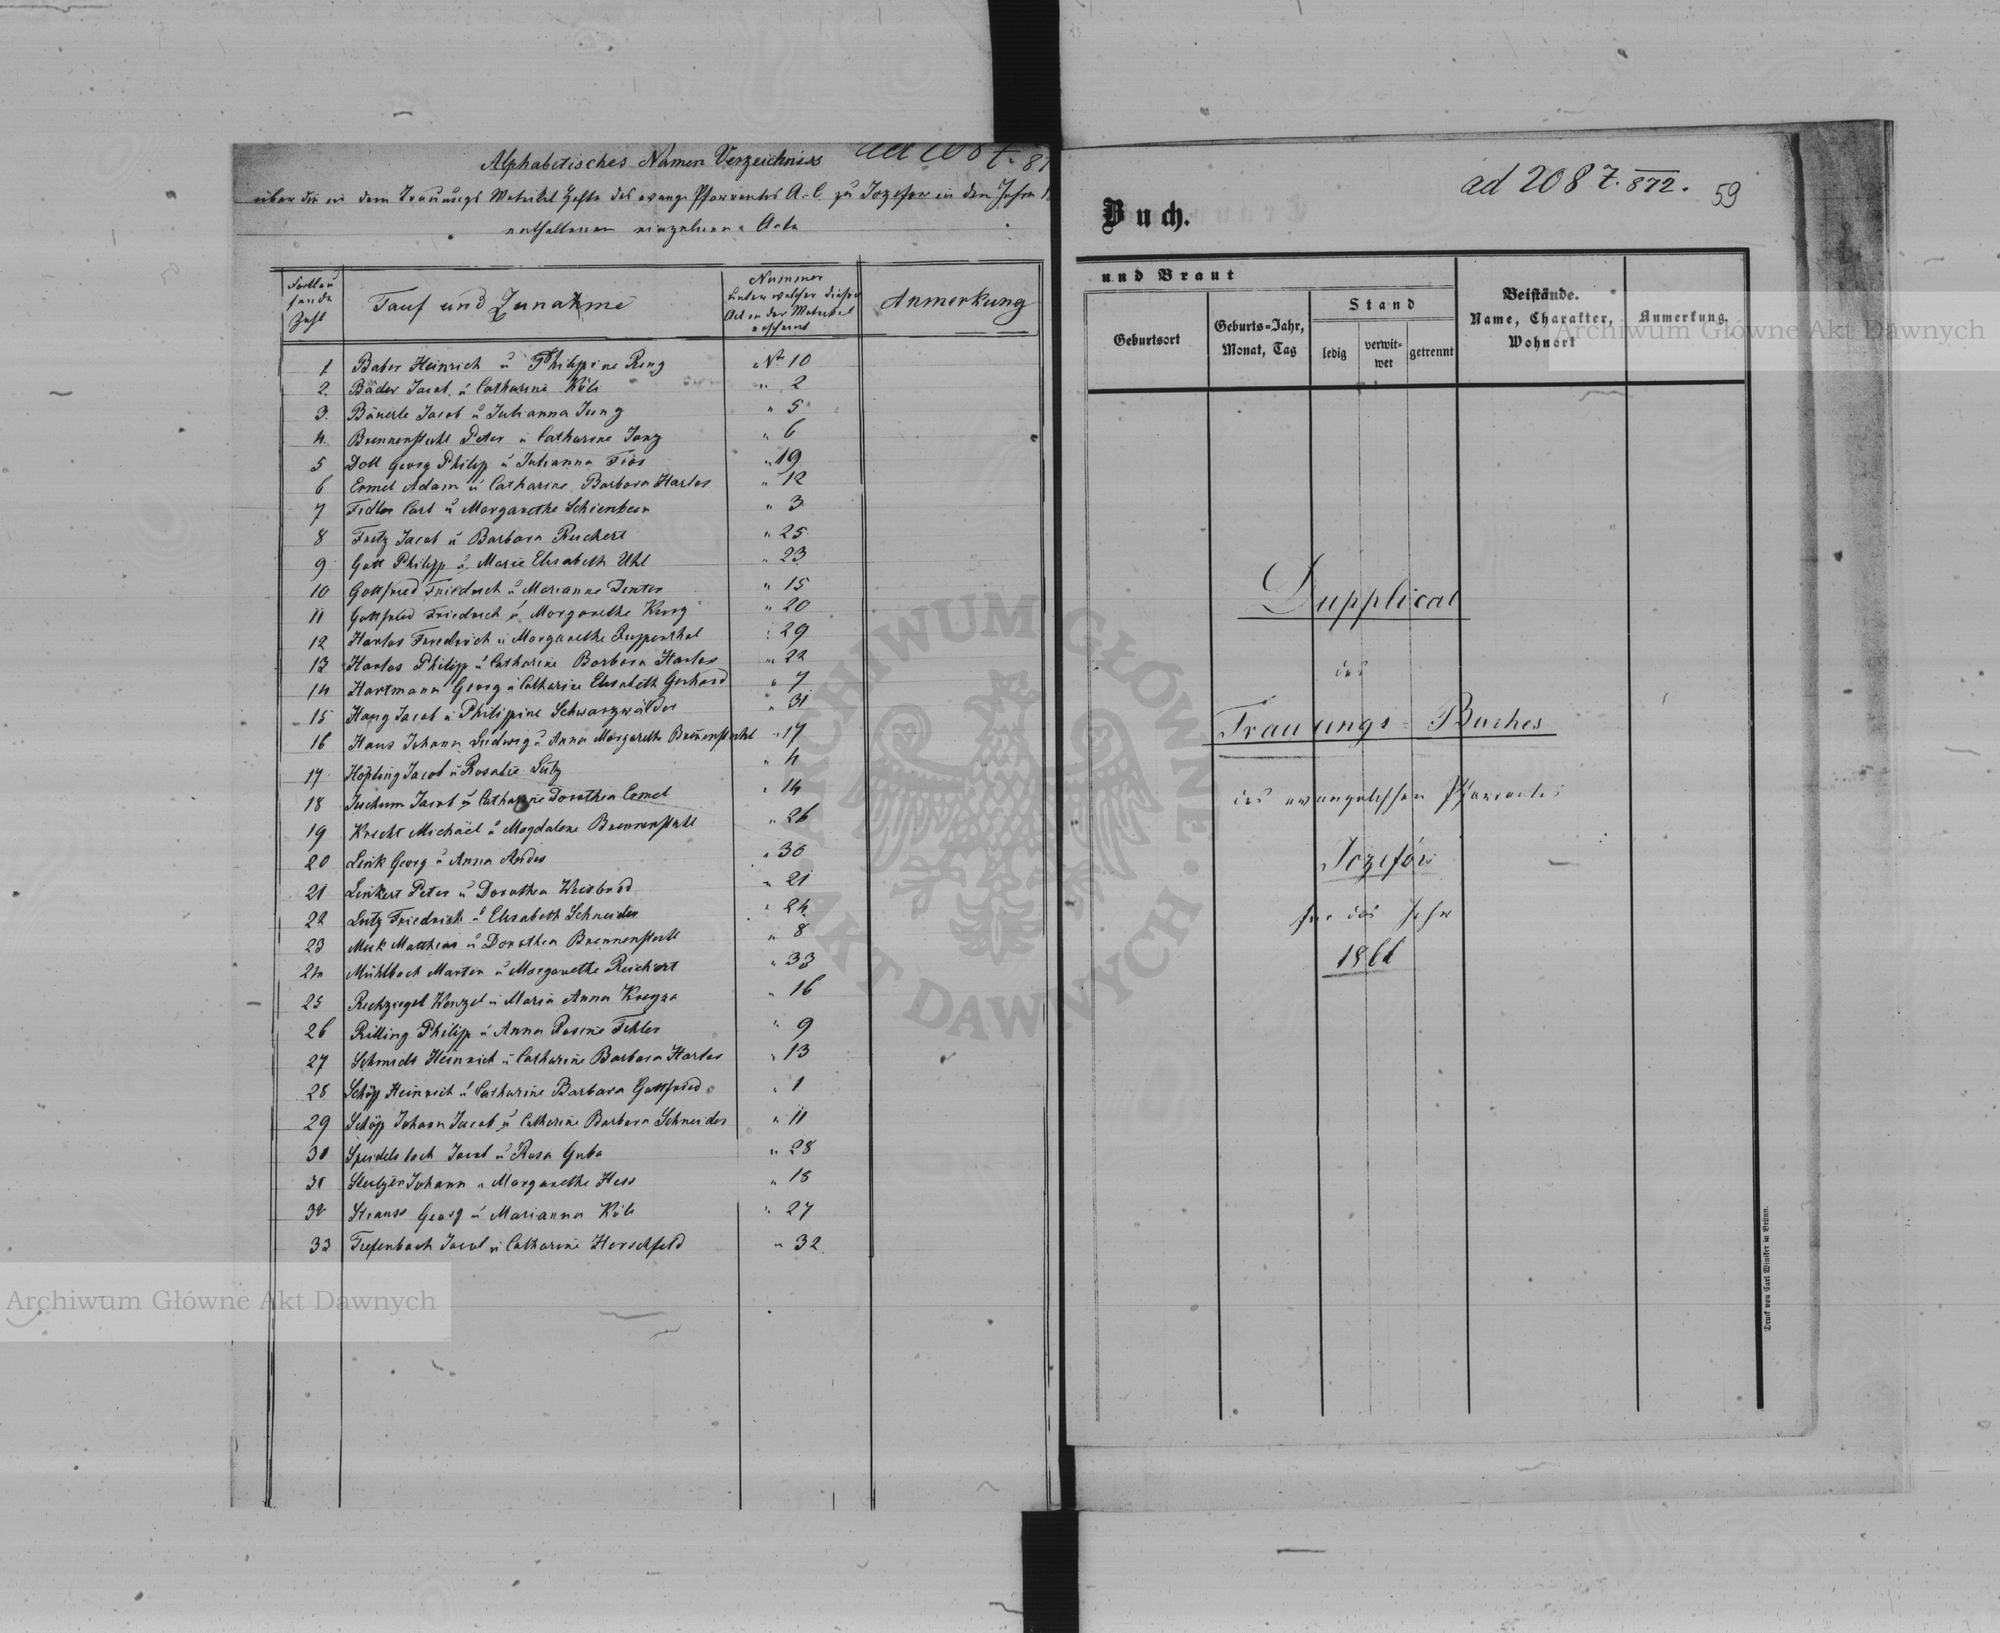 Alphabetisches Namen Verzeichniss
ad 208 Z. 87
über die in dem Trauungs Matrikel Hefte des evang. Pfarramtes A. C. zu Jozefow in den Jahre 1
enthaltenen einzelnen Acte
Fortlau
fende
Zahl
Tauf und Zunahme
Nummer
unter welcher dieser
Act in der Matrikel
erscheint
Anmerkung
1 Baber Heinrich u Philippine Reng No 10
2. Bäder Jacob u Catharine Köli " 2
3. Bäuerle Jacob u Julianna Jung " 5
4. Brennenstuhl Peter u Catharine Janz " 6
5 Doll Georg Philipp u Julianna " 19
6 Ermel Adam u Catharine Barbara Harlos " 12
7 Fidler Carl u Margarethe " 3
8 Fritz Jacob u Barbara Reichert " 25
9 Gott Philipp u Marie Elisabeth Uhl " 23
10 Gottfried Friedrich u Marianne " 15
11 Gottfried Friedrich u Margarethe King " 20
12 Harlos Friedrich u Margarethe Ruppenthal " 29
13 Harlos Philipp u Catharine Barbara Harlos " 22
14 Hartmann Georg u Catharine Elisabeth Gerhard " 7
15 Haug Jacob u Philippine Schwarzwälder " 31
16 Haus Johann Ludwig u Anna Margareth Brennenstuhl " 17
17 Höpting Jacob u Rosalie Lutz " 4
18 Juchum Jacob u Catharine Dorothea Ermel " 14
19 Knecht Michael u Magdalene Brennenstuhl " 26
20 Lenk Georg u Anna Andes " 30
21 Linkert Peter u Dorothea Weisbrod " 21
22 Lutz Friedrich u Elisabeth Schneider " 24
23 Meck Matthias u Dorothea Brennenstuhl " 8
24 Mühlbach Martin u Margarethe Reichert " 33
25 Rechziegel Wenzel u Maria Anna " 16
26 Rilling Philipp u Anna Rosine Fehler " 9
27 Schmidt Heinrich u Catharine Barbara Harlos " 13
28 Schöpp Heinrich u Catharine Barbara Gottfried " 1
29 Schöpp Johann Jacob u Catharine Barbara Schneider " 11
30 Speidelsbach Jacob u Rosa Guba " 28
31 Johann u Margarethe Hess " 18
32 Strauss Georg u Marianna Köli " 27
33 Tiefenbach Jacob u Catharine Herschfeld " 32
Archiwum Główne Akt Dawnych
ARCHIWUM GŁÓWNE AKT DAWNYCH
ad 208 Z. 872. 59
Buch.
und Braut
Geburtsort
Geburts=Jahr,
Monat, Tag
Stand
ledig
verwit=
wet
getrennt
Beistände.
Name, Charakter,
Wohnort
Anmerkung.
Archiwum Główne Akt Dawnych
Dupplicat
des
Trauungs=Buches
des evangelischen Pfarramtes
Jozefów
für das Jahr
1861
Druck von Carl Winiker in Brünn.